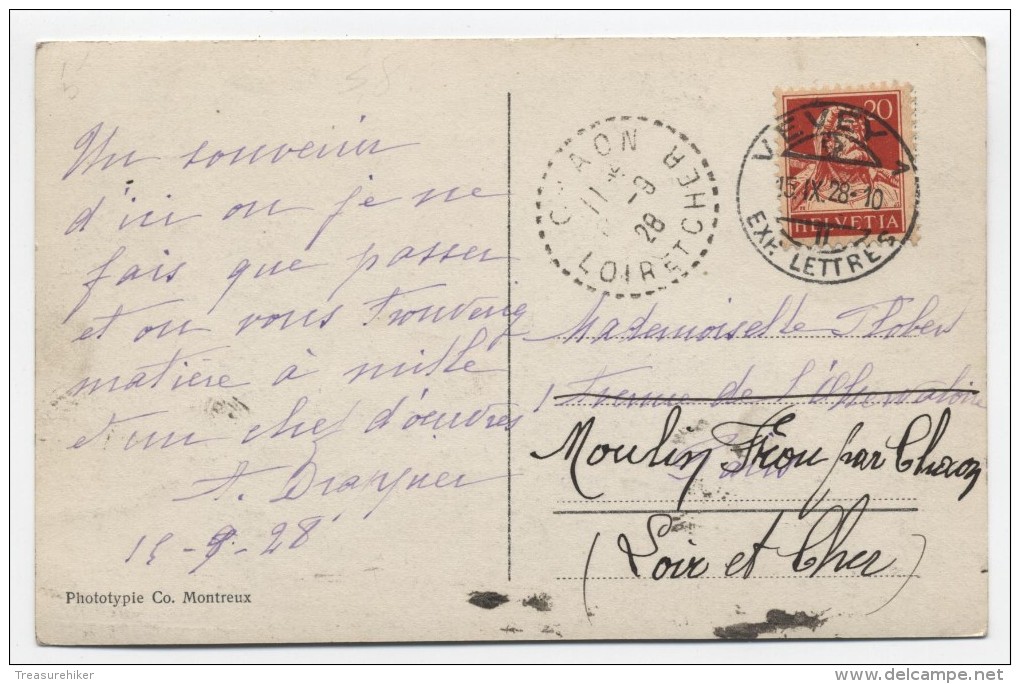 Un souvenir
d'ici ou je ne
fais que passer
et ou vous trouverez
matière à mille
et un chef d'œuvres
A.
15-9-28
Phototypie Co. Montreux
CHAON
11
-9
28
LOIR ET CHER
20
HELVETIA
VEVEY 1
15.IX.28-10
EXP. LETTRES
Mademoiselle
1 Avenue de l'Observatoire
Paris
Moulin Fréou par Chaon
(Loir et Cher)
Treasurehiker
www.delcampe.net